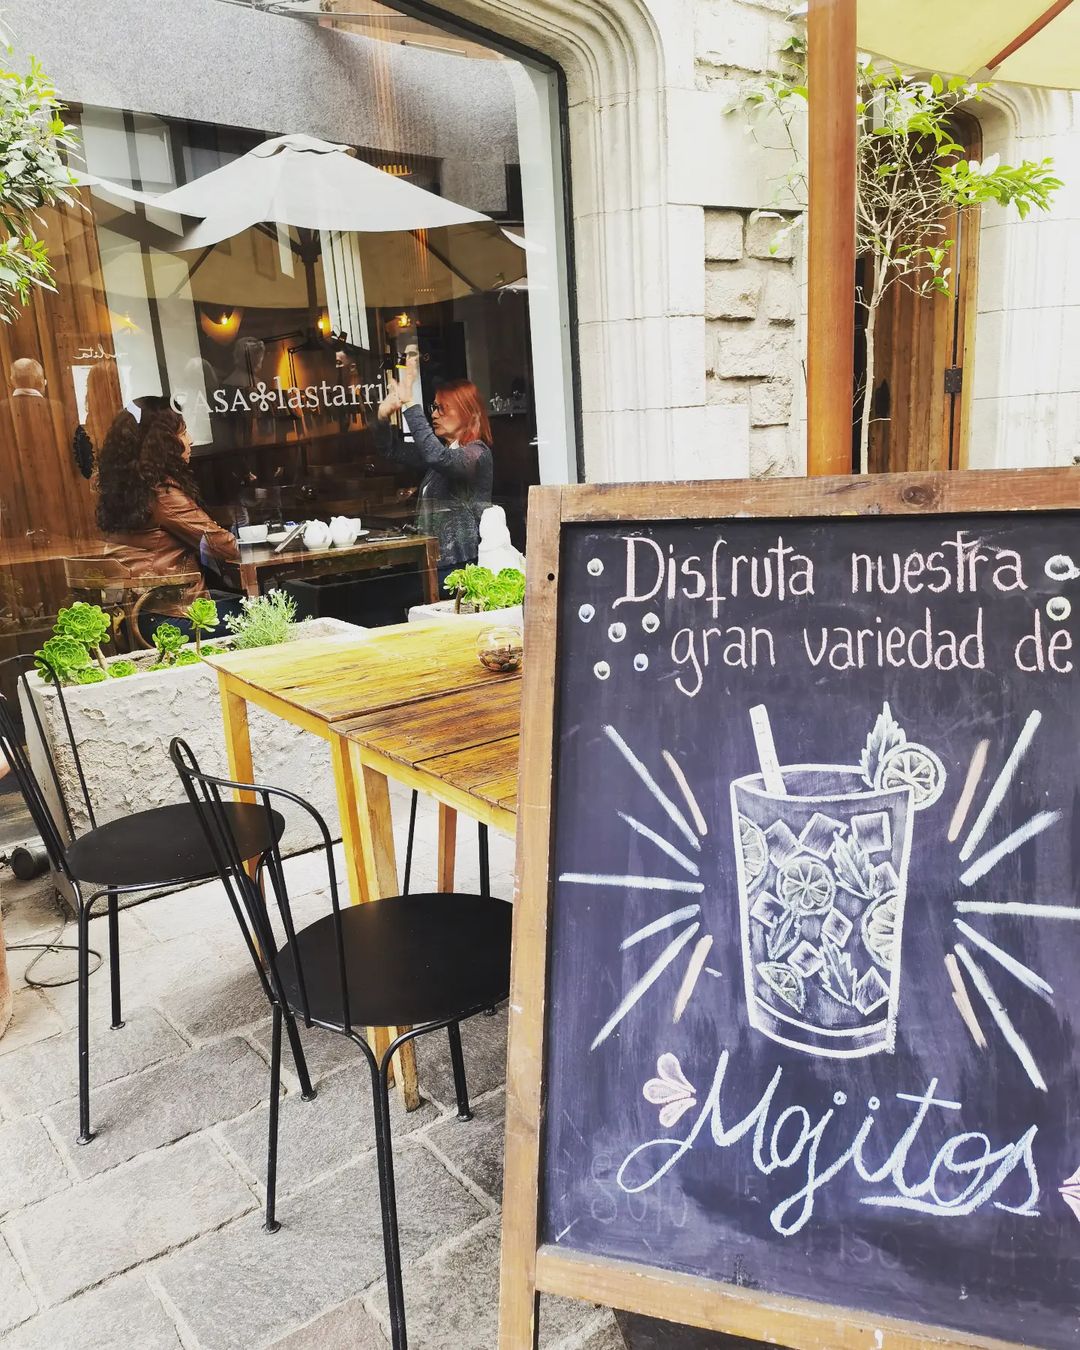 CASA lastarria
Disfruta nuestra
gran variedad de
Mojitos